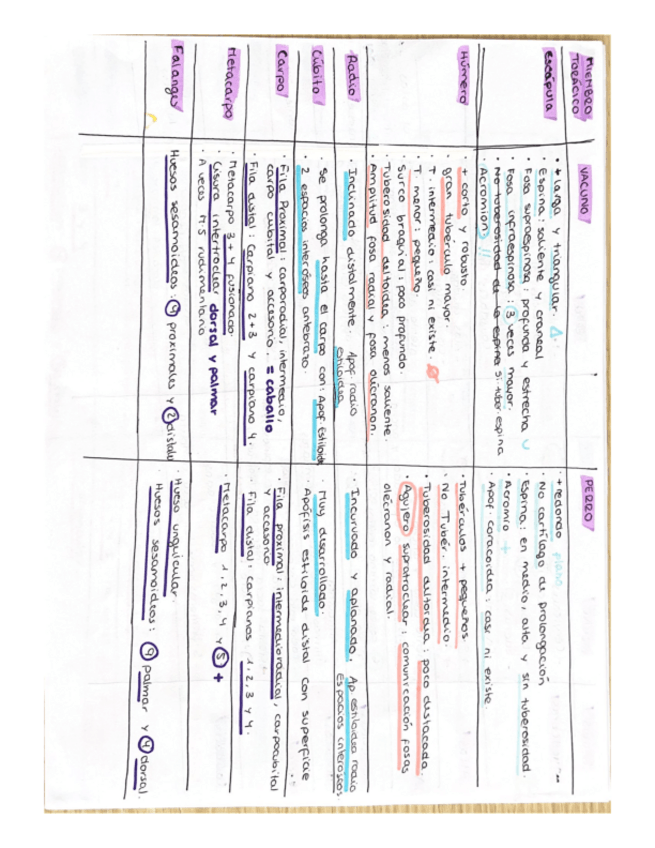 MIEMBRO
TORÁCICO
VACUNO
PERRO
Escápula
· + larga y triangular.
· Espina: saliente y craneal
· Fosa supraespinosa: profunda y estrecha
· Fosa infraespinosa: 3 veces mayor.
· No tuberosidad de la espina sí tuber. espina
· Acromion !!
· + redondo plano
· No cartílago de prolongación
· Espina: en medio, alta y sin tuberosidad.
· Acromio +
· Apof. coracoidea: casi ni existe.
Húmero
· + corto y robusto.
· gran tubérculo mayor
· T. intermedio: casi ni existe
· T. menor: pequeño.
· Surco braquial: poco profundo.
· Tuberosidad deltoidea: menos saliente.
· Amplitud fosa radial y fosa olécranon.
· Tubérculos + pequeños.
· No Tuber. intermedio.
· Tuberosidad deltoidea: poco destacada.
· Agujero supratroclear: comunicación fosas
olécranon y radial.
Radio
· Inclinado distalmente. Apof. radio
estiloidea
· Incurvado y aplanado. Ap estiloides radio
Espacios interoseos.
Cúbito
· Se prolonga hasta el carpo con: Apof. Estiloide
· 2 espacios interóseos antebrazo.
· Muy desarrollado.
Apófisis estiloide distal con superficie
Carpo
· Fila Proximal: carporadial, intermedio,
carpo cubital y accesorio. = caballo
· Fila distal: Carpiano 2+3 y carpiano 4.
· Fila proximal: intermedioradial, carpocubital
y accesorio
· Fila distal: carpianos 1, 2, 3 y 4.
Metacarpo
· Metacarpo 3 + 4 fusionado.
· Cisura intertroclear dorsal y palmar
· A veces M.5 rudimentario
· Metacarpo 1, 2, 3, 4 y 5 +
Falanges
Huesos sesamoideos: 4 proximales y 2 distales
· Hueso unguicular.
· Huesos sesamoideos: 9 palmar y 4 dorsal.